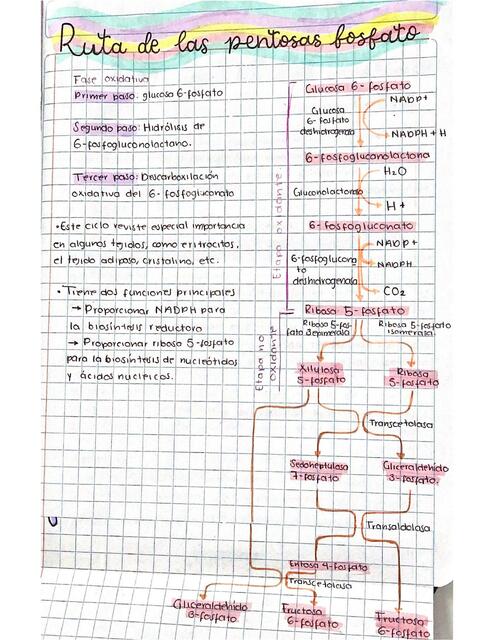 Ruta de las pentosas fosfato
Fase oxidativa
Primer paso: glucosa 6-fosfato
Segundo paso: Hidrólisis de
6-fosfogluconolactano.
Tercer paso: Descarboxilación
oxidativa del 6-fosfogluconato
• Este ciclo reviste especial importancia
en algunos tejidos, como eritrocitos,
el tejido adiposo, cristalino, etc.
• Tiene dos funciones principales
→ Proporcionar NADPH para
la biosíntesis reductora
→ Proporcionar ribosa 5-fosfato
para la biosíntesis de nucleótidos
y ácidos nucleicos.
Etapa oxidante
Glucosa 6-fosfato
Glucosa
6-fosfato
deshidrogenasa
NADP+
NADPH + H
6-fosfogluconolactona
Gluconolactonasa
H2O
H+
6-fosfogluconato
6-fosfoglucona
to
deshidrogenasa
NADP+
NADPH
CO2
Ribosa 5-fosfato
Etapa no
oxidante
Ribosa 5-fos
fato 3epimerasa
Ribosa 5-fosfato
isomerasa
Xilulosa
5-fosfato
Ribosa
5-fosfato
Transcetolasa
Sedoheptulosa
7-fosfato
Gliceraldehido
3-fosfato.
Transaldolasa
Eritosa 4-fosfato
Transcetolasa
Gliceraldehido
3-fosfato
Fructosa
6-fosfato
Fructosa
6-fosfato